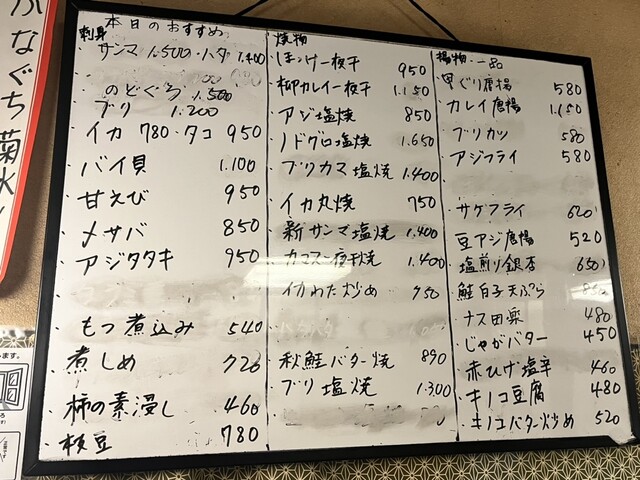 ふなぐち菊水
本日のおすすめ
刺身
サンマ 1.500・ハタ 1.400
のどぐろ 1.500
ブリ 1.200
・イカ 780・タコ 950
・バイ貝 1.100
・甘えび 950
・メサバ 850
・アジタタキ 950
・もつ煮込み 540
・煮しめ 720
・柿の素浸し 460
・枝豆 780
焼物
・ほっけ一夜干 950
・柳カレイ一夜干 1.150
・アジ塩焼 850
・ノドグロ塩焼 1.650
・ブリカマ塩焼 1.400
・イカ丸焼 750
・新サンマ塩焼 1.400
・カマス一夜干焼 1.400
・イカわた炒め 950
・秋鮭バター焼 890
・ブリ塩焼 1.300
揚物・一品
・唐揚 580
・カレイ唐揚 1.150
・ブリカツ 580
・アジフライ 580
・サケフライ 620
・豆アジ唐揚 520
・塩煎り銀杏 650
・鮭白子天ぷら
・ナス田楽 480
・じゃがバター 450
・赤ひげ塩辛 460
・キノコ豆腐 480
・キノコバター炒め 520